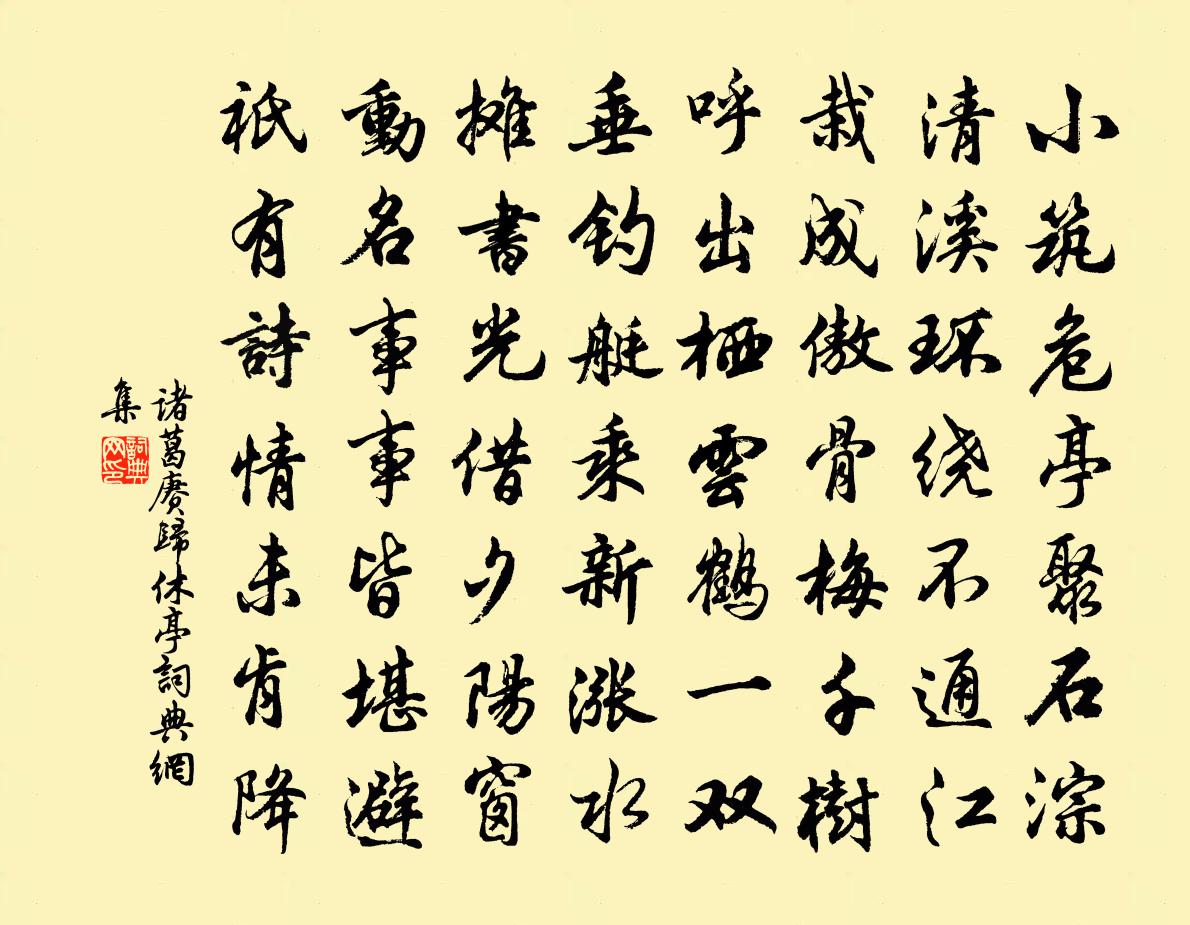 小筑危亭聚石淙
清溪环绕不通江
栽成傲骨梅千樹
呼出栖雲鶴一双
垂钓艇乘新涨水
摊書光借夕陽窗
動名事事皆堪避
祇有詩情未肯降
诸葛赓歸休亭詞典網
集
詞典
网印